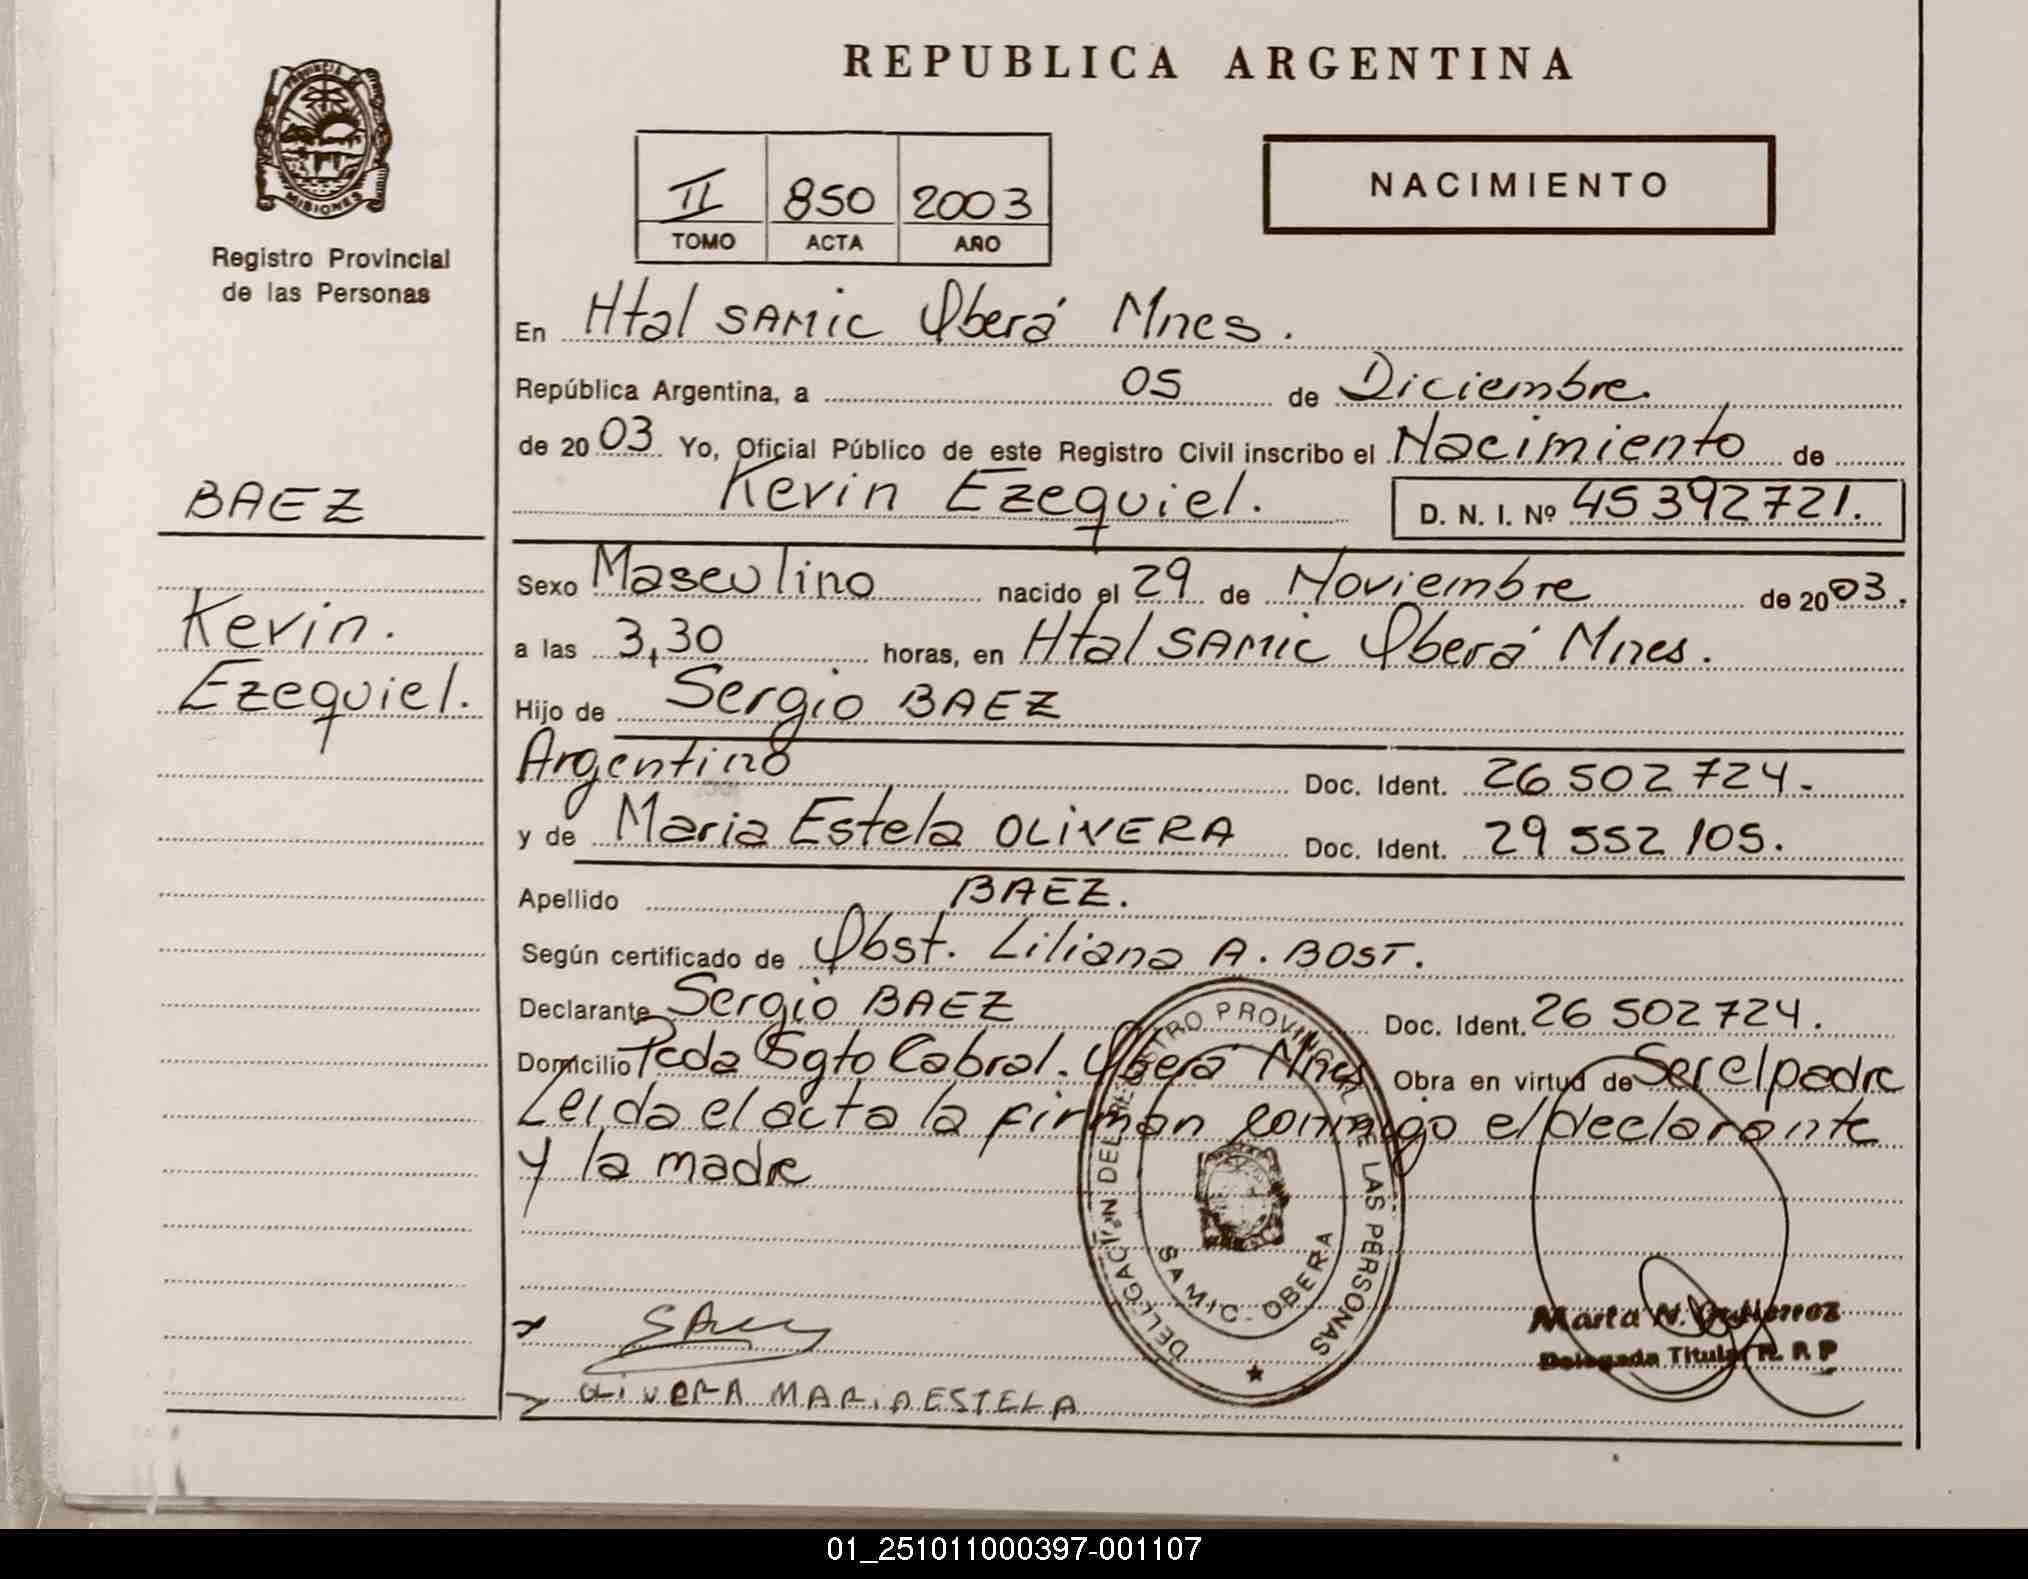 REPUBLICA ARGENTINA
PROVINCIA DE
MISIONES
Registro Provincial
de las Personas
II 850 2003
TOMO ACTA AÑO
NACIMIENTO
En Htal SAMIC Oberá Mnes.
República Argentina, a 05 de Diciembre.
de 2003 Yo, Oficial Público de este Registro Civil inscribo el Nacimiento de
Kevin Ezequiel. D. N. I. Nº 45 392 721.
BAEZ
Kevin.
Ezequiel.
Sexo Masculino nacido el 29 de Noviembre de 2003.
a las 3,30 horas, en Htal SAMIC Oberá Mnes.
Hijo de Sergio BAEZ
Argentino Doc. Ident. 26 502 724.
y de Maria Estela OLIVERA Doc. Ident. 29 552 105.
Apellido BAEZ.
Según certificado de Obst. Liliana A. BOST.
Declarante Sergio BAEZ Doc. Ident. 26 502 724.
Domicilio Pcda Sgto Cabral. Oberá Mnes. Obra en virtud de Ser el padre
Leida el acta la firman conmigo el declarante
y la madre
DELEGACION DEL REGISTRO PROVINCIAL DE LAS PERSONAS
SAMIC - OBERA
Marta N. Gutierrez
Delegada Titular R. P. P
OLIVERA MARIA ESTELA
01_251011000397-001107